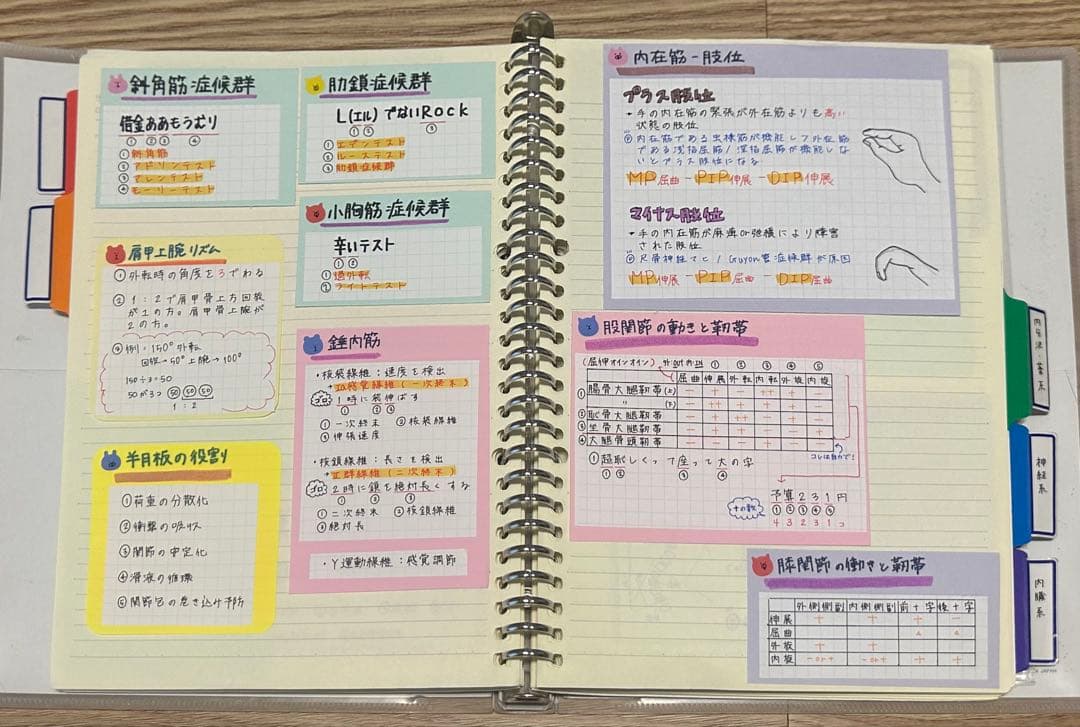 斜角筋症候群
借金ああもうむり
① ② ③ ④
①斜角筋
②アドソンテスト
③アレンテスト
④モーリーテスト
肋鎖症候群
L(エル)でないRock
① ② ③
①エデンテスト
②ルーステスト
③肋鎖症候群
小胸筋症候群
辛いテスト
① ②
①過外転
②ライトテスト
肩甲上腕リズム
①外転時の角度を3でわる
②1:2で肩甲骨上方回旋
が1の方。肩甲骨上腕が
2の方。
例:150°外転
回旋→50° 上腕→100°
150÷3=50
50が3つ 50 50 50
1:2
半月板の役割
①荷重の分散化
②衝撃の吸収
③関節の安定化
④滑液の循環
⑤関節包の巻き込み予防
錘内筋
・核袋線維:速度を検出
→Ⅰa感覚線維(一次終末)
ゴロ 1時に袋伸ばす
① ② ③
①一次終末 ②核袋線維
③伸張速度
・核鎖線維:長さを検出
→Ⅱ群線維(二次終末)
ゴロ 2時に鎖を絶対長くする
① ② ③
①二次終末 ②核鎖線維
③絶対長
・γ運動線維:感覚調節
内在筋-肢位
プラス肢位
・手の内在筋の緊張が外在筋よりも高い
状態の肢位
内在筋である虫様筋が機能して外在筋
である浅指屈筋/深指屈筋が機能しな
いとプラス肢位になる
MP屈曲-PIP伸展-DIP伸展
マイナス肢位
・手の内在筋が麻痺or弛緩により障害
された肢位
尺骨神経マヒ/Guyon管症候群が原因
MP伸展-PIP屈曲-DIP屈曲
股関節の動きと靭帯
(屈伸オインオイン) 外out内in ① ② ③ ④ ⑤
屈曲 伸展 外転 内転 外旋 内旋
①腸骨大腿靭帯(上) - + - ++ + -
〃(下) - ++ + - + -
②恥骨大腿靭帯 - + ++ - + -
③坐骨大腿靭帯 - + + - - +
④大腿骨頭靭帯 - - - + + -
コレは自力で!
①超恥しくって座って大の字
① ② ③ ④
予算231円
①②③④⑤
+の数 4 3 2 3 1 つ
膝関節の動きと靭帯
外側側副 内側側副 前十字 後十字
伸展 + + + -
屈曲 △ △
外旋 + + - -
内旋 -or+ -or+ + +
内分泌・栄養系
神経系
内臓系